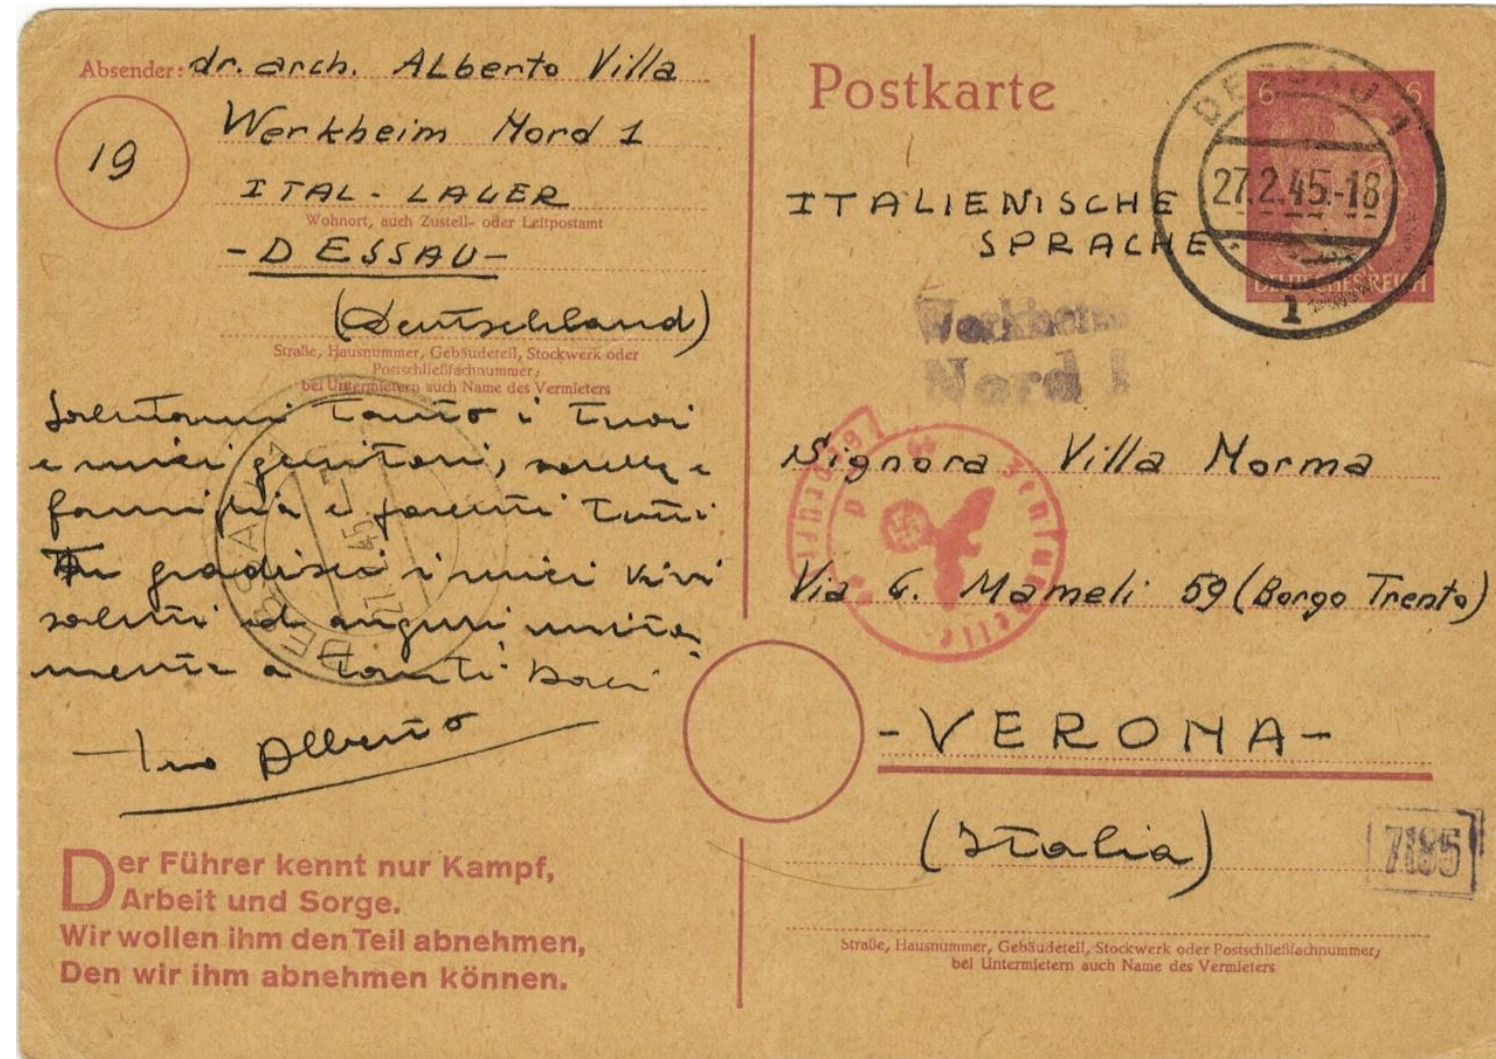 Absender: dr. arch. Alberto Villa
Werkheim Nord 1
19
ITAL - LAGER
Wohnort, auch Zustell- oder Leitpostamt
- DESSAU -
(Deutschland)
Straße, Hausnummer, Gebäudeteil, Stockwerk oder
Postschließfachnummer;
bei Untermietern auch Name des Vermieters
Salutami tanto i tuoi
e miei genitori, sorelle e
famiglia e parenti tutti
Tu gradisci i miei vivi
saluti ed auguri unita
mente a tanti baci
Tuo Alberto
Der Führer kennt nur Kampf,
Arbeit und Sorge.
Wir wollen ihm den Teil abnehmen,
Den wir ihm abnehmen können.
DESSAU
Postkarte
6 6
DEUTSCHES REICH
DESSAU 1
27.2.45.-18
1
ITALIENISCHE
SPRACHE
Werkheim
Nord 1
Signora Villa Norma
Via G. Mameli 59 (Borgo Trento)
- VERONA -
(Italia)
7185
Straße, Hausnummer, Gebäudeteil, Stockwerk oder Postschließfachnummer;
bei Untermietern auch Name des Vermieters